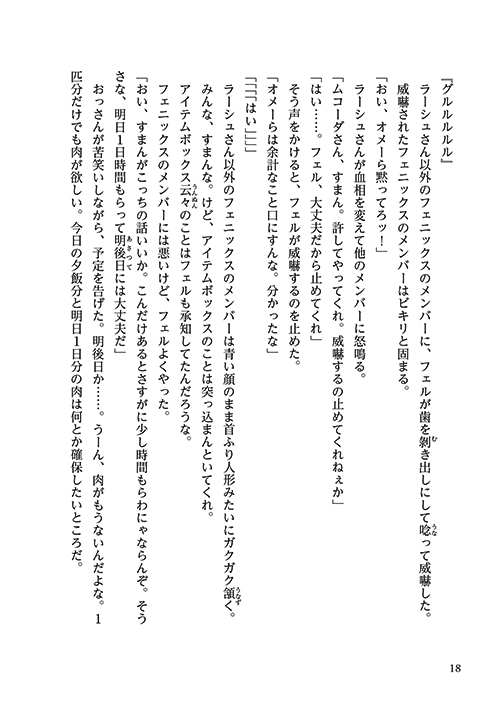 『グルルルルル』
ラーシュさん以外のフェニックスのメンバーに、フェルが歯を剝き出しにして唸って威嚇した。
威嚇されたフェニックスのメンバーはビキリと固まる。
「おい、オメーら黙ってろッ！」
ラーシュさんが血相を変えて他のメンバーに怒鳴る。
「ムコーダさん、すまん。許してやってくれ。威嚇するの止めてくれねぇか」
「はい……。フェル、大丈夫だから止めてくれ」
そう声をかけると、フェルが威嚇するのを止めた。
「オメーらは余計なこと口にすんな。分かったな」
「「「「はい」」」」
ラーシュさん以外のフェニックスのメンバーは青い顔のまま首ふり人形みたいにガクガク頷く。
みんな、すまんな。けど、アイテムボックスのことは突っ込まんといてくれ。
アイテムボックス云々のことはフェルも承知してたんだろうな。
フェニックスのメンバーには悪いけど、フェルよくやった。
「おい、すまんがこっちの話いいか。こんだけあるとさすがに少し時間もらわにゃならんぞ。そう
さな、明日１日時間もらって明後日には大丈夫だ」
おっさんが苦笑いしながら、予定を告げた。明後日か……。うーん、肉がもうないんだよな。１
匹分だけでも肉が欲しい。今日の夕飯分と明日１日分の肉は何とか確保したいところだ。
18